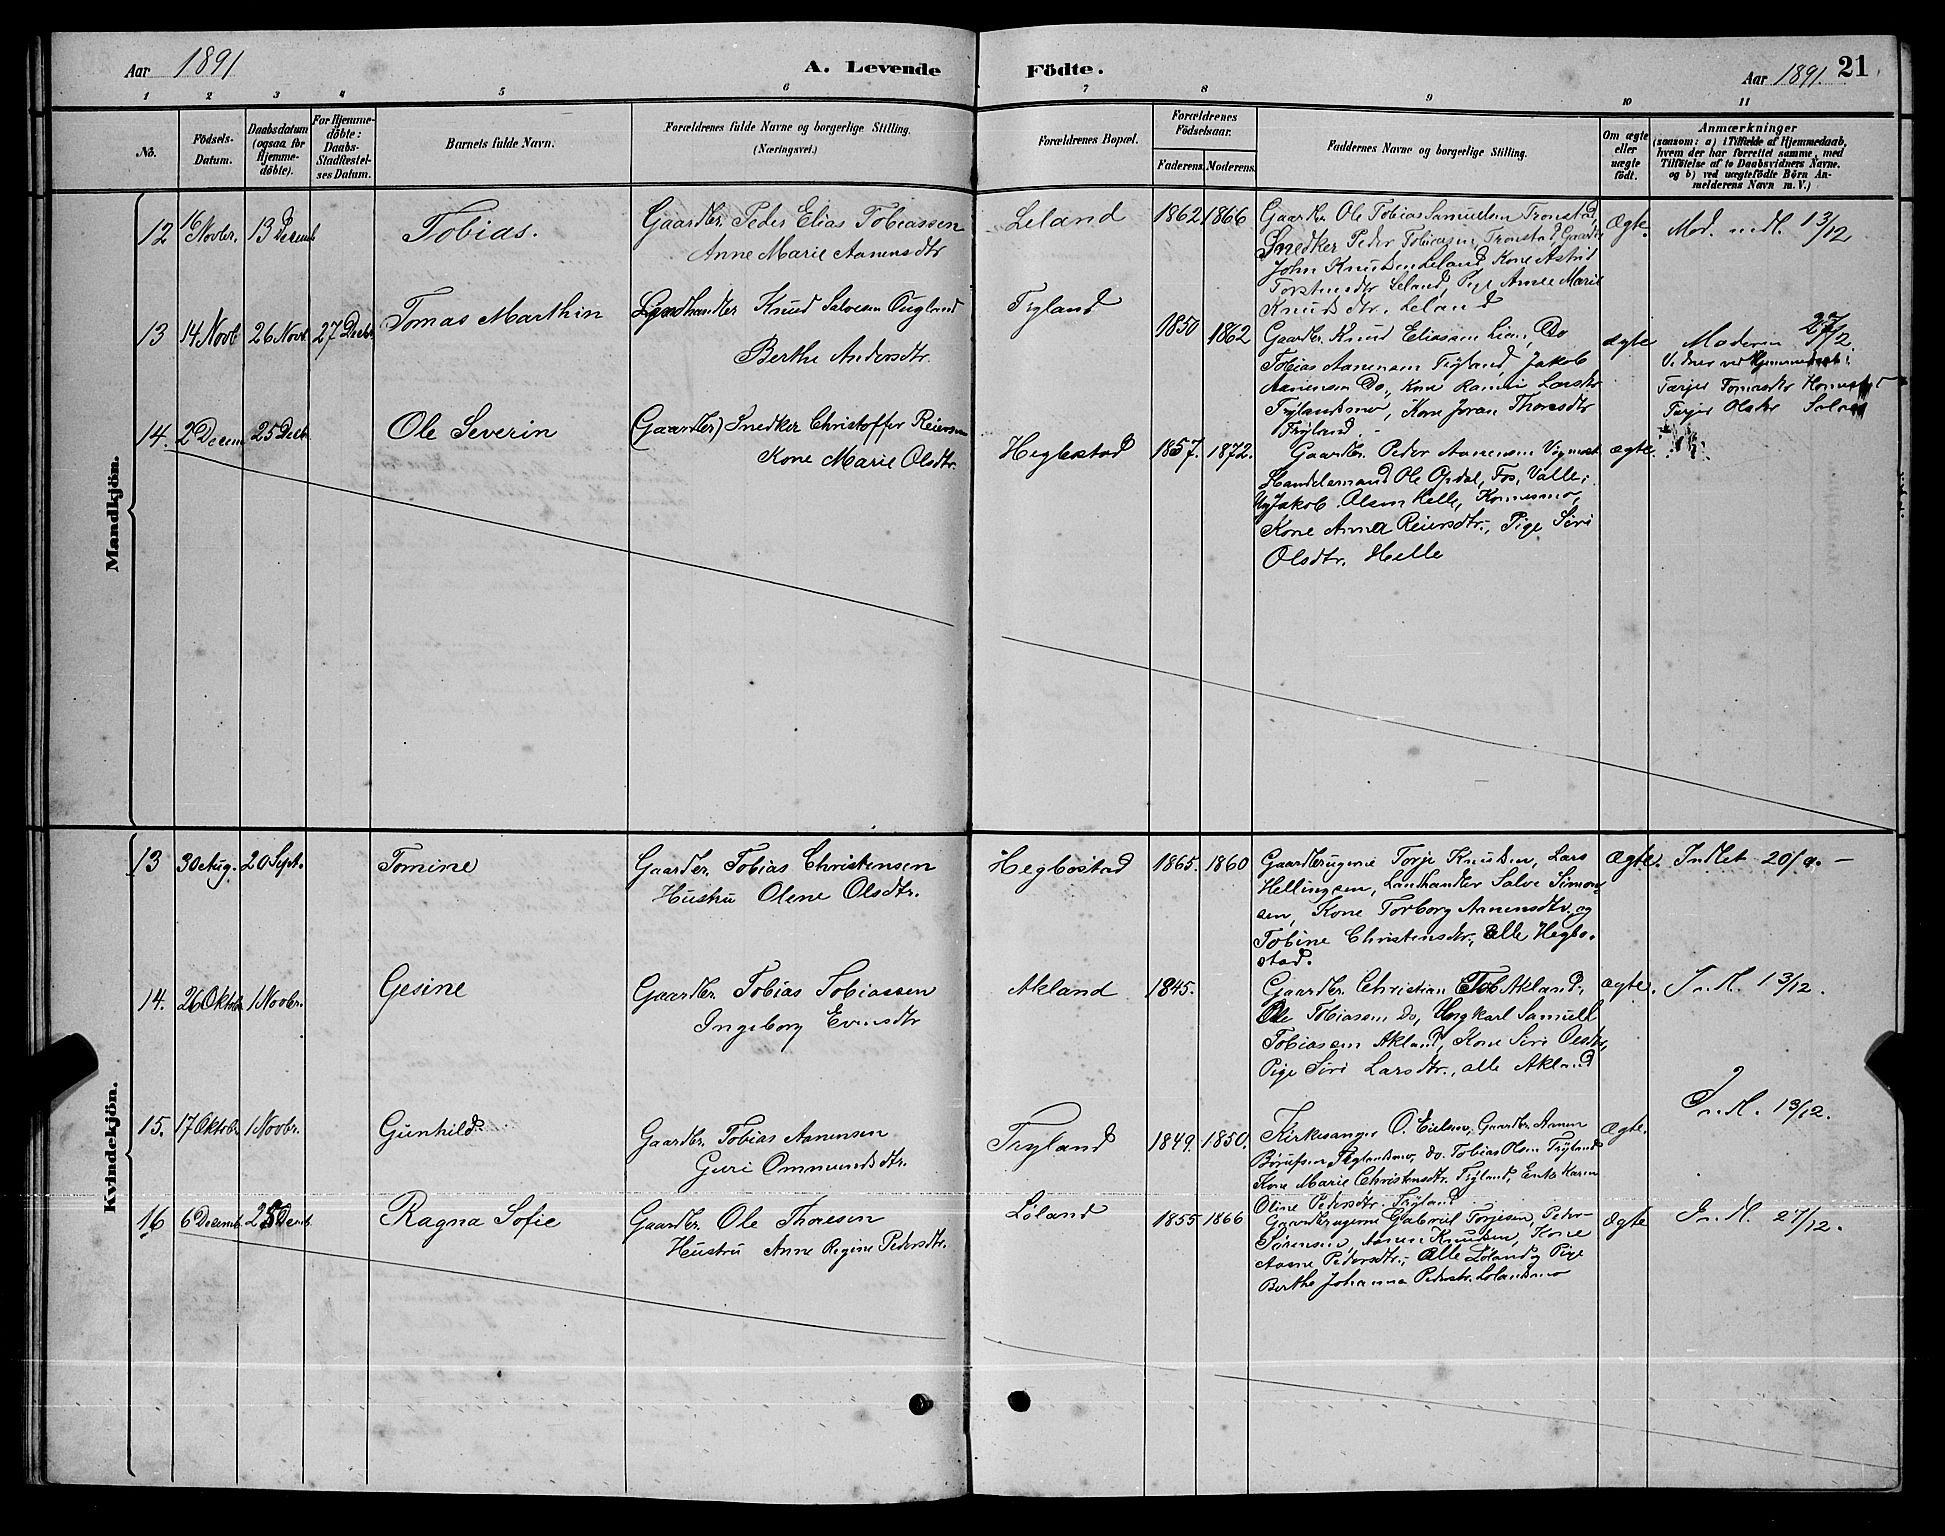 Aar 1891
A. Levende
Födte.
Aar 1891.
21
1 2 3 4 5 6
7 8 9 10 11
No.
Födsels-
Datum.
Daabsdatum
(ogsaa for
Hjemme-
döbte).
For Hjemme-
döbte:
Daabs-
Stadfæstel-
ses Datum.
Barnets fulde Navn.
Forældrenes fulde Navne og borgerlige Stilling.
(Næringsvei.)
Forældrenes Bopæl.
Forældrenes
Födselsaar.
Faderens. Moderens.
Faddernes Navne og borgerlige Stilling.
Om ægte
eller
uægte
födt.
Anmærkninger
(saasom: a) i Tilfælde af Hjemmedaab,
hvem der har forrettet samme, med
Tilföielse af to Daabsvidners Navne.
og b) ved uægtefödte Börn An-
melderens Navn m. V.)
Mandkjön.
12 16 Novbr. 13 Decemb
Tobias.
Gaardbr. Peder Elias Tobiassen
Anne Marie Aanensdtr
Leland
1862 1866
Gaardbr. Ole Tobias Samuelsen Tronstad,
Snedker Peder Tobiasen, Tronstad, Gaardbr
John Knudsen Leland, Kone Astrid
Torstensdtr Leland, Pige Anne Marie
Knudsdtr. Leland
Ægte.
Mod. indl. 13/12
13 14 Novb 26 Novb 27 Decbr
Tomas Marthin
Landhandler Knud Salvesen Ougland
Berthe Andersdtr.
Tryland
1850 1862
Gaardbr. Knud Eliassen Lien, Do
Tobias Aanensen Tryland, Jakob
Aanensen Do, Kone Larsdtr
Trylandsmo, Kone Joran Thoresdtr
Tryland.
ægte
Moderen 27/12
Vidner ved Hjemmedaab:
Tarjer Tomasdtr
Tarjer Olsdtr
14. 2 Decem 25 Decb
Ole Severin
(Gaardbr) Snedker Christoffer Reiersen
Kone Marie Olsdtr.
Hegbostad
1857. 1872.
Gaardbr. Peder Aanensen
Handelsmand Ole Opdal, Fos, Valle,
Ug Jakob Olsen Helle, Konnesmo,
Kone Anna Reiersdtr., Pige Siri
Olsdtr. Helle
ægte.
Kvindekjön.
13 30 Aug. 20 Sept.
Tomine
Gaardbr. Tobias Christensen
Hustru Olene Olsdtr.
Hegbostad
1865. 1860
Gaardbrugerne Torje Knudsen, Lars
Hellingsen, Landhandler Salve Simon-
sen, Kone Torborg Aanensdtr. og
Tobine Christensdtr., alle Hegbo-
stad.
Ægte.
Indlet 20/9. —
14. 26 Oktbr 1 Novbr.
Gesine
Gaardbr. Tobias Tobiassen
Ingeborg Evensdtr
Akland
1845.
Gaardbr. Christian Tob Akland,
Ole Tobiasen do, Ungkarl Samuel
Tobiasen Akland, Kone Siri Olsdtr,
Pige Siri Larsdtr., alle Akland
ægte.
I. M. 13/12.
15. 17 Oktobr. 1 Novbr.
Gunhild
Gaardbr. Tobias Aanensen
Guri Ommundsdtr.
Tryland
1849. 1850.
Kirkesanger O. Eielsen, Gaardbr. Aanen
Trylandsmo, do. Tobias Olsen Tryland
Kone Marie Christensdtr. Tryland, Enke Karen
Oline Pedersdtr. Tryland
Ægte.
I. M. 13/12.
16 6 Decemb. 25 Decmb.
Ragna Sofie
Gaardbr. Ole Thoresen
Hustru Anne Regine Pedersdtr.
Löland
1855 1866
Gaardbrugerne Gabriel Torjesen, Peder
Sörensen, Aanen Knudsen, Kone
Aasne Pedersdtr., alle Löland og Pige
Berthe Johanne Pedersdtr. Lölandsmo
Ægte
I. M. 27/12.